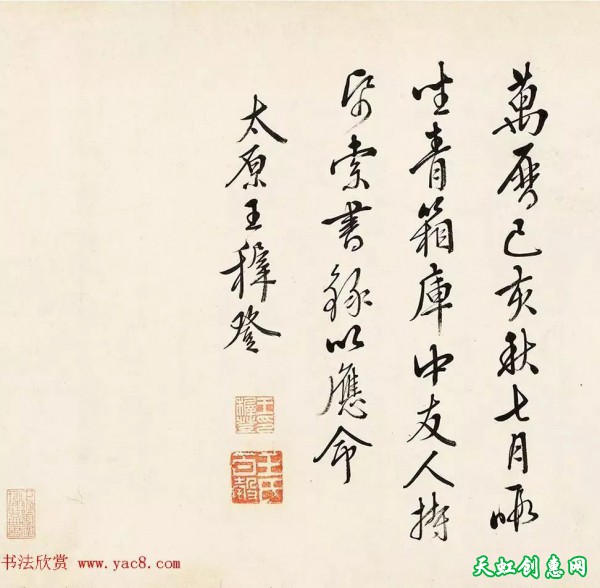 萬曆己亥秋七月暇
坐青箱庫中友人攜
帋索書錄以應命
太原王穉登
王氏百穀
书法欣赏 www.yac8.com
天虹创惠网